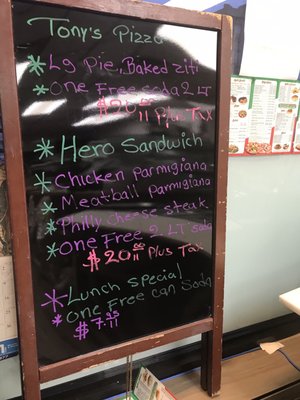 Tony's Pizza
* Lg Pie, Baked ziti
* One Free soda 2 LT
Plus Tax
* Hero Sandwich
* Chicken Parmigiana
* Meatball Parmigiana
* Philly cheese steak
* One Free 2 LT soda
$20.00 Plus Tax
* Lunch special
* One Free can Soda